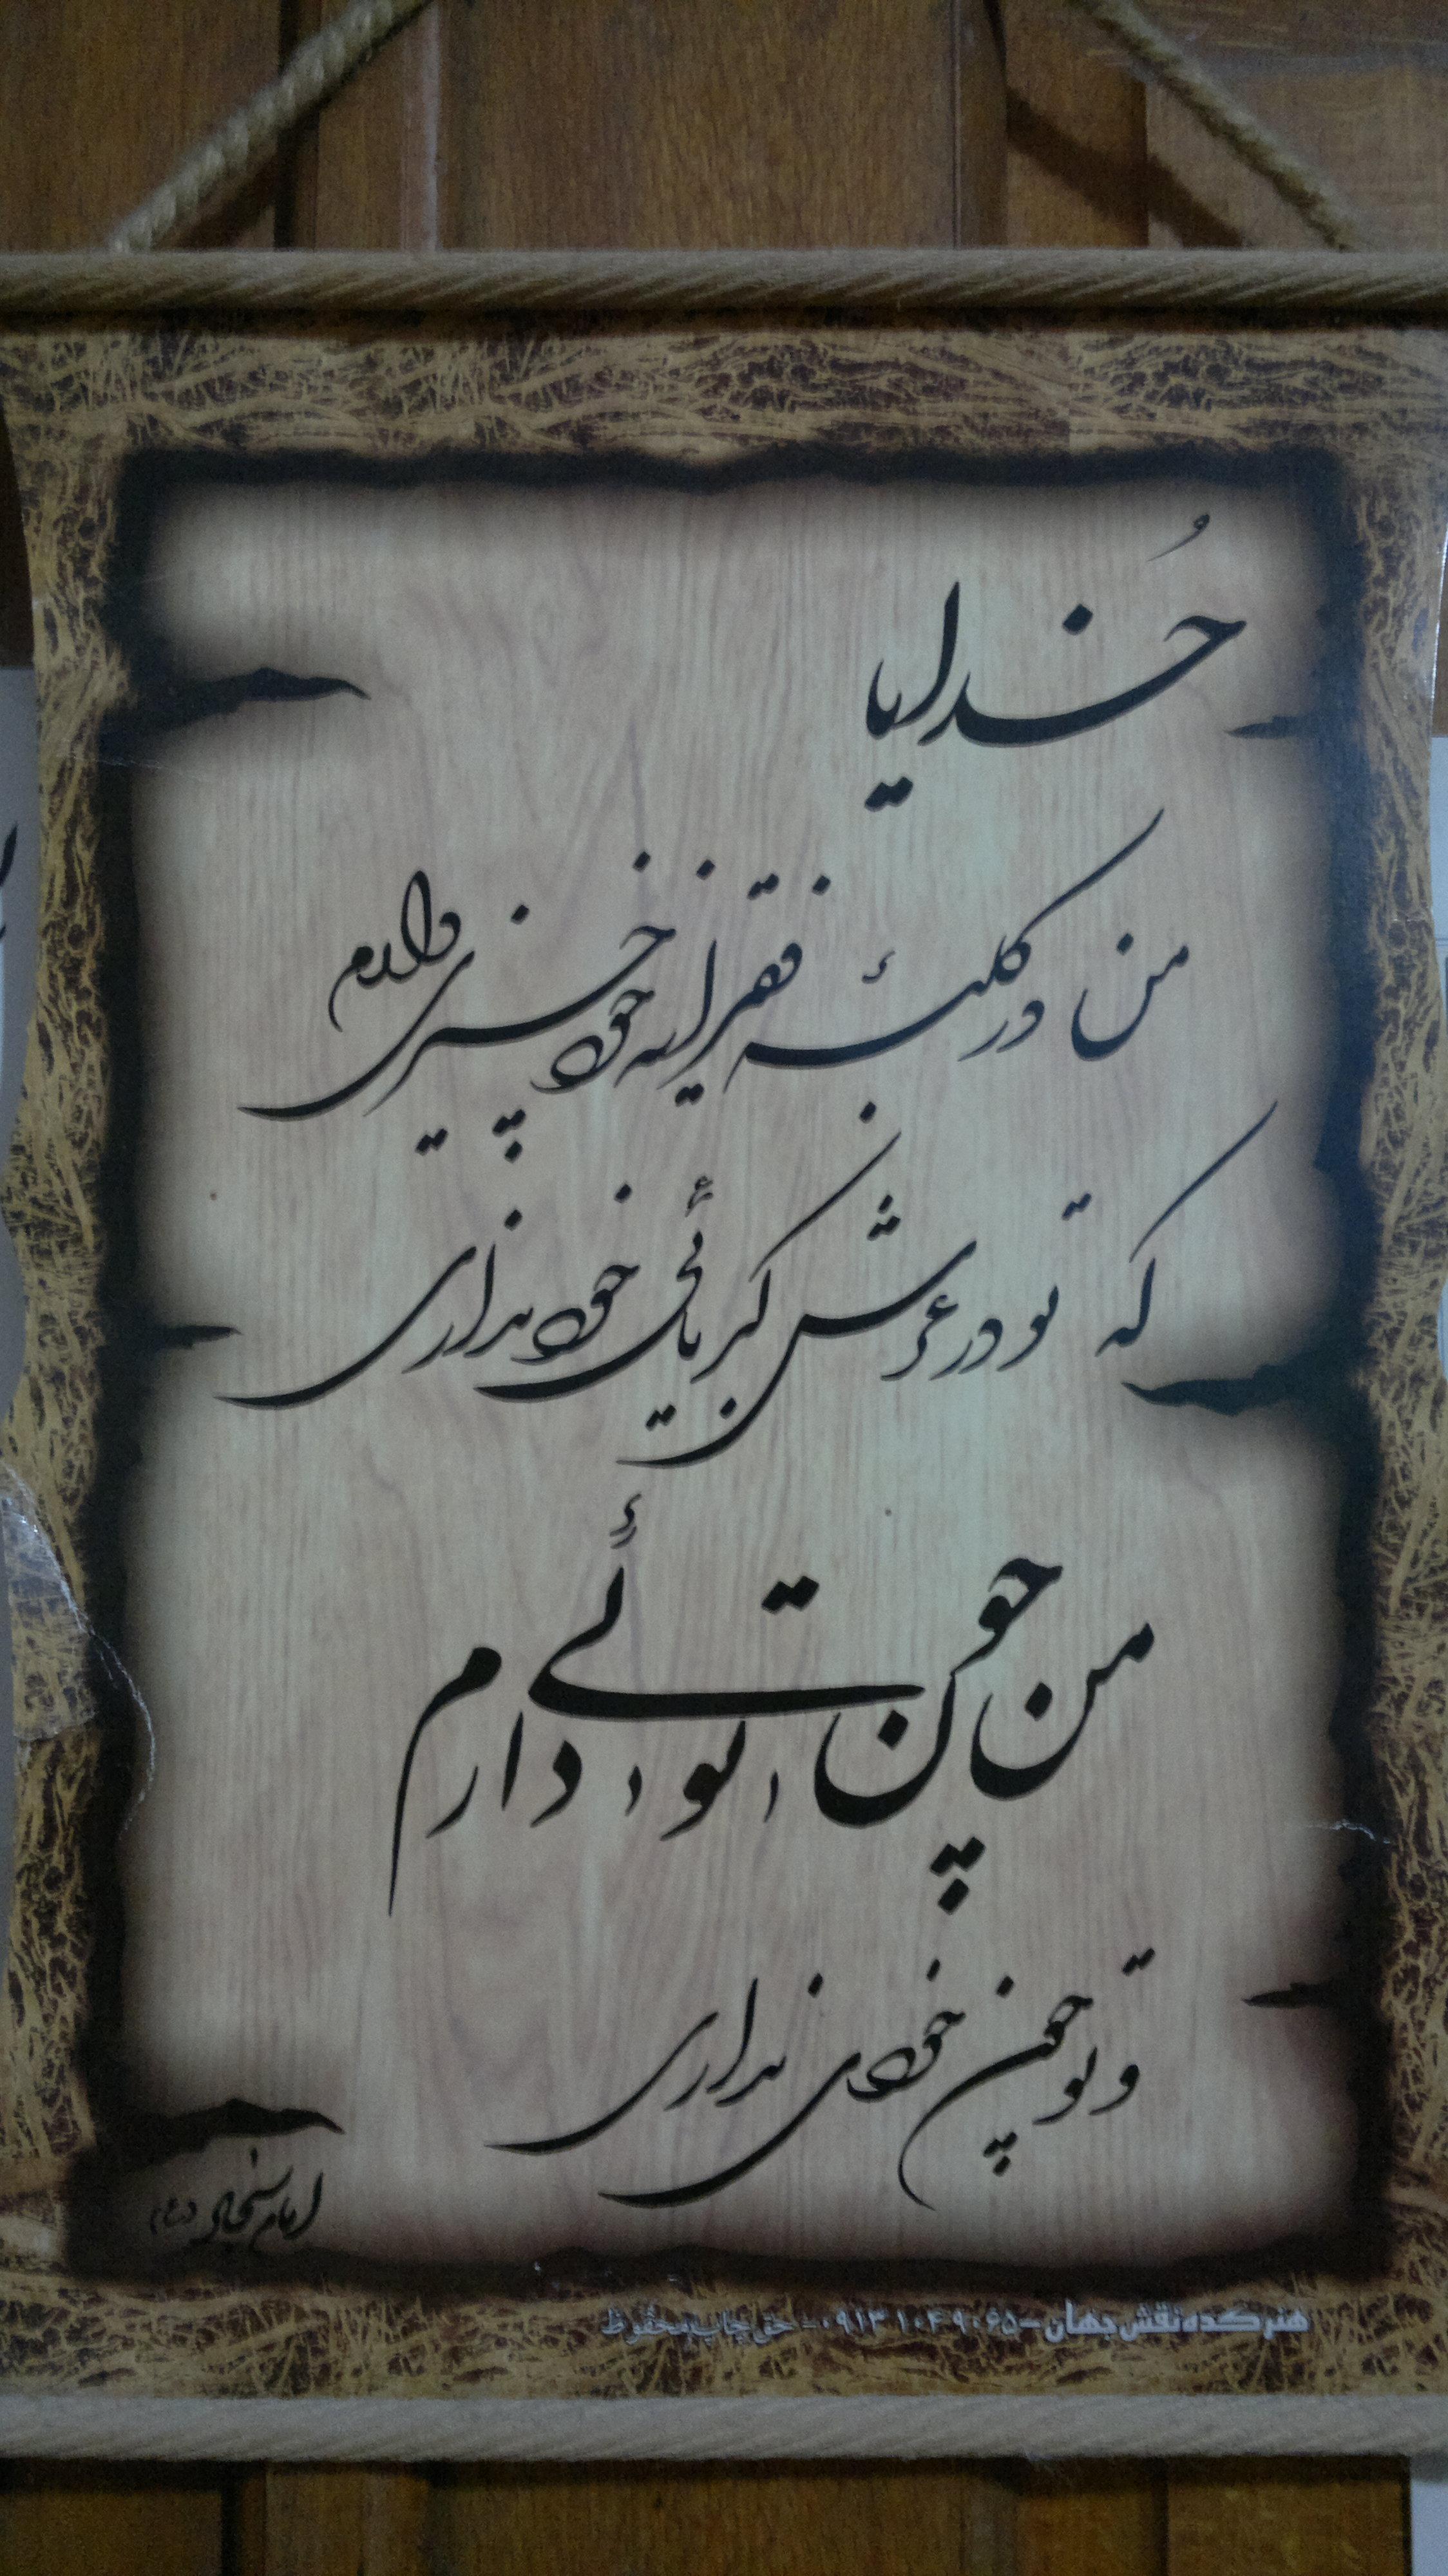 خُدایا
من در کلبهٔ فقیرانه خود چیزی دارم
که تو در عرش کبریائی خود نداری
من چون توئی دارم
و تو چون خودی نداری
امام سجاد (ع)
هنرکده نقش جهان - ۰۹۱۳۱۰۴۹۰۶۵ - حق چاپ محفوظ